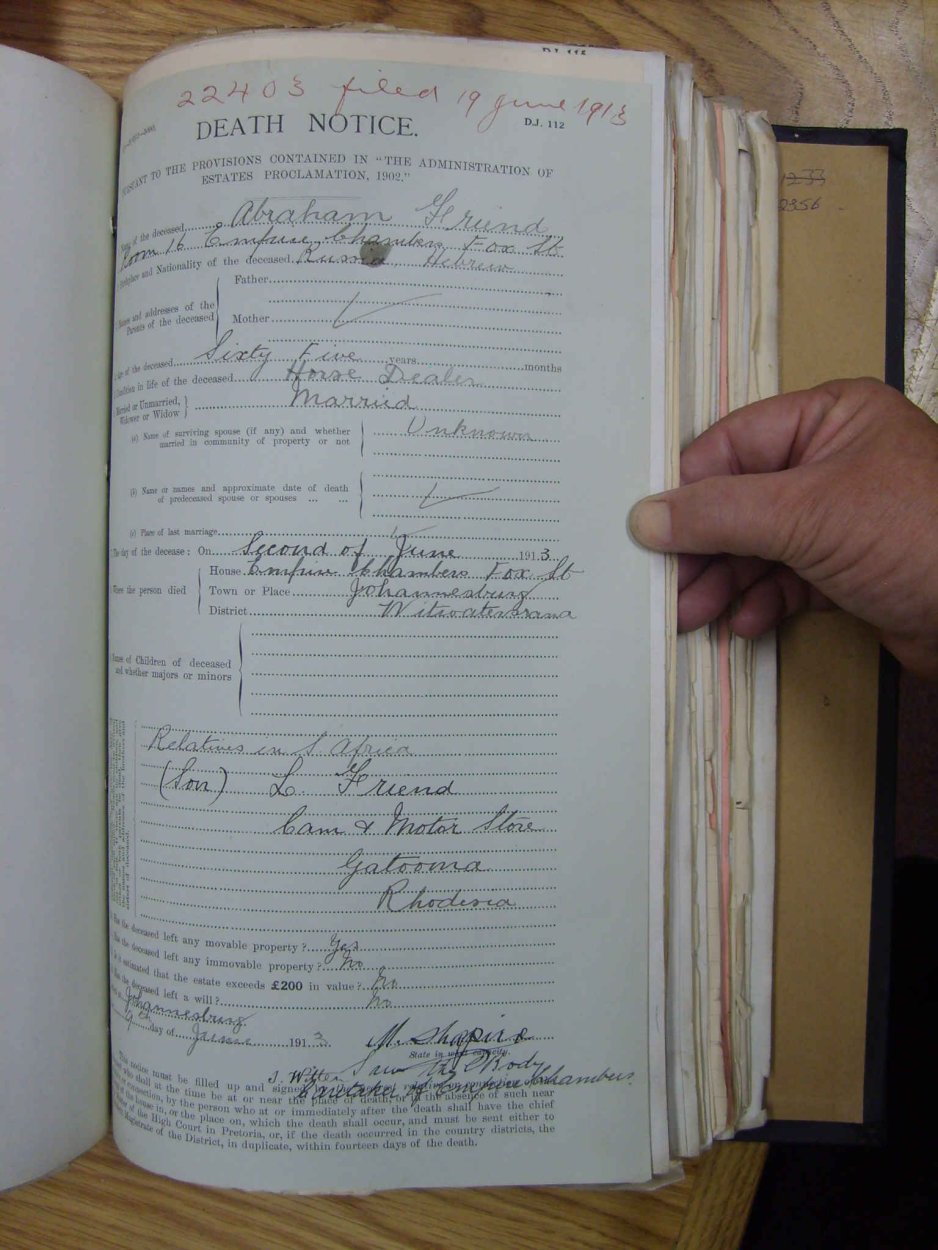 D.J. 112
22403 filed 19 June 1913
DEATH NOTICE.
D.J. 112
PURSUANT TO THE PROVISIONS CONTAINED IN "THE ADMINISTRATION OF
ESTATES PROCLAMATION, 1902."
Name of the deceased Abraham Friend
Room 16 Empire Chambers Fox St
Birthplace and Nationality of the deceased Russia, Hebrew
Names and addresses of the
Parents of the deceased
Father
Mother
Age of the deceased Sixty Five years months
Condition in life of the deceased Horse Dealer
Married or Unmarried,
Widower or Widow
Married
(a) Name of surviving spouse (if any) and whether
married in community of property or not
Unknown
(b) Name or names and approximate date of death
of predeceased spouse or spouses ... ...
(c) Place of last marriage
The day of the decease: On Second of June 1913.
Where the person died
House Empire Chambers Fox St
Town or Place Johannesburg
District Witwatersrand
Names of Children of deceased
and whether majors or minors
Relatives in S Africa
(Son) L. Friend
Cam & Motor Store
Gatooma
Rhodesia
Has the deceased left any movable property? Yes
Has the deceased left any immovable property? No
Is it estimated that the estate exceeds £200 in value? No
Has the deceased left a will? No
Johannesburg
9th day of June 1913.
M. Shapiro
State in what capacity.
I saw the Body
Caretaker of Empire Chambers
This notice must be filled up and signed
who shall at the time be at or near the place of death, or in the absence of such near
or connection, by the person who at or immediately after the death shall have the chief
of the house in, or the place on, which the death shall occur, and must be sent either to
Master of the High Court in Pretoria, or, if the death occurred in the country districts, the
Magistrate of the District, in duplicate, within fourteen days of the death.
1233
2356